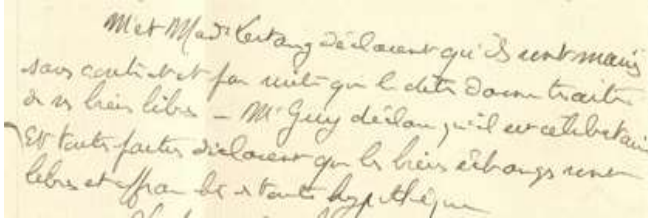 M et Mad Lestang déclarent qu'ils sont mariés
sans contrat et par suite que la dite Dame traite
de ses biens libres – Mr Guy déclare qu'il est célibataire
Et toutes parties déclarent que les biens échangés sont
libres et affranchis de toute hypothèque